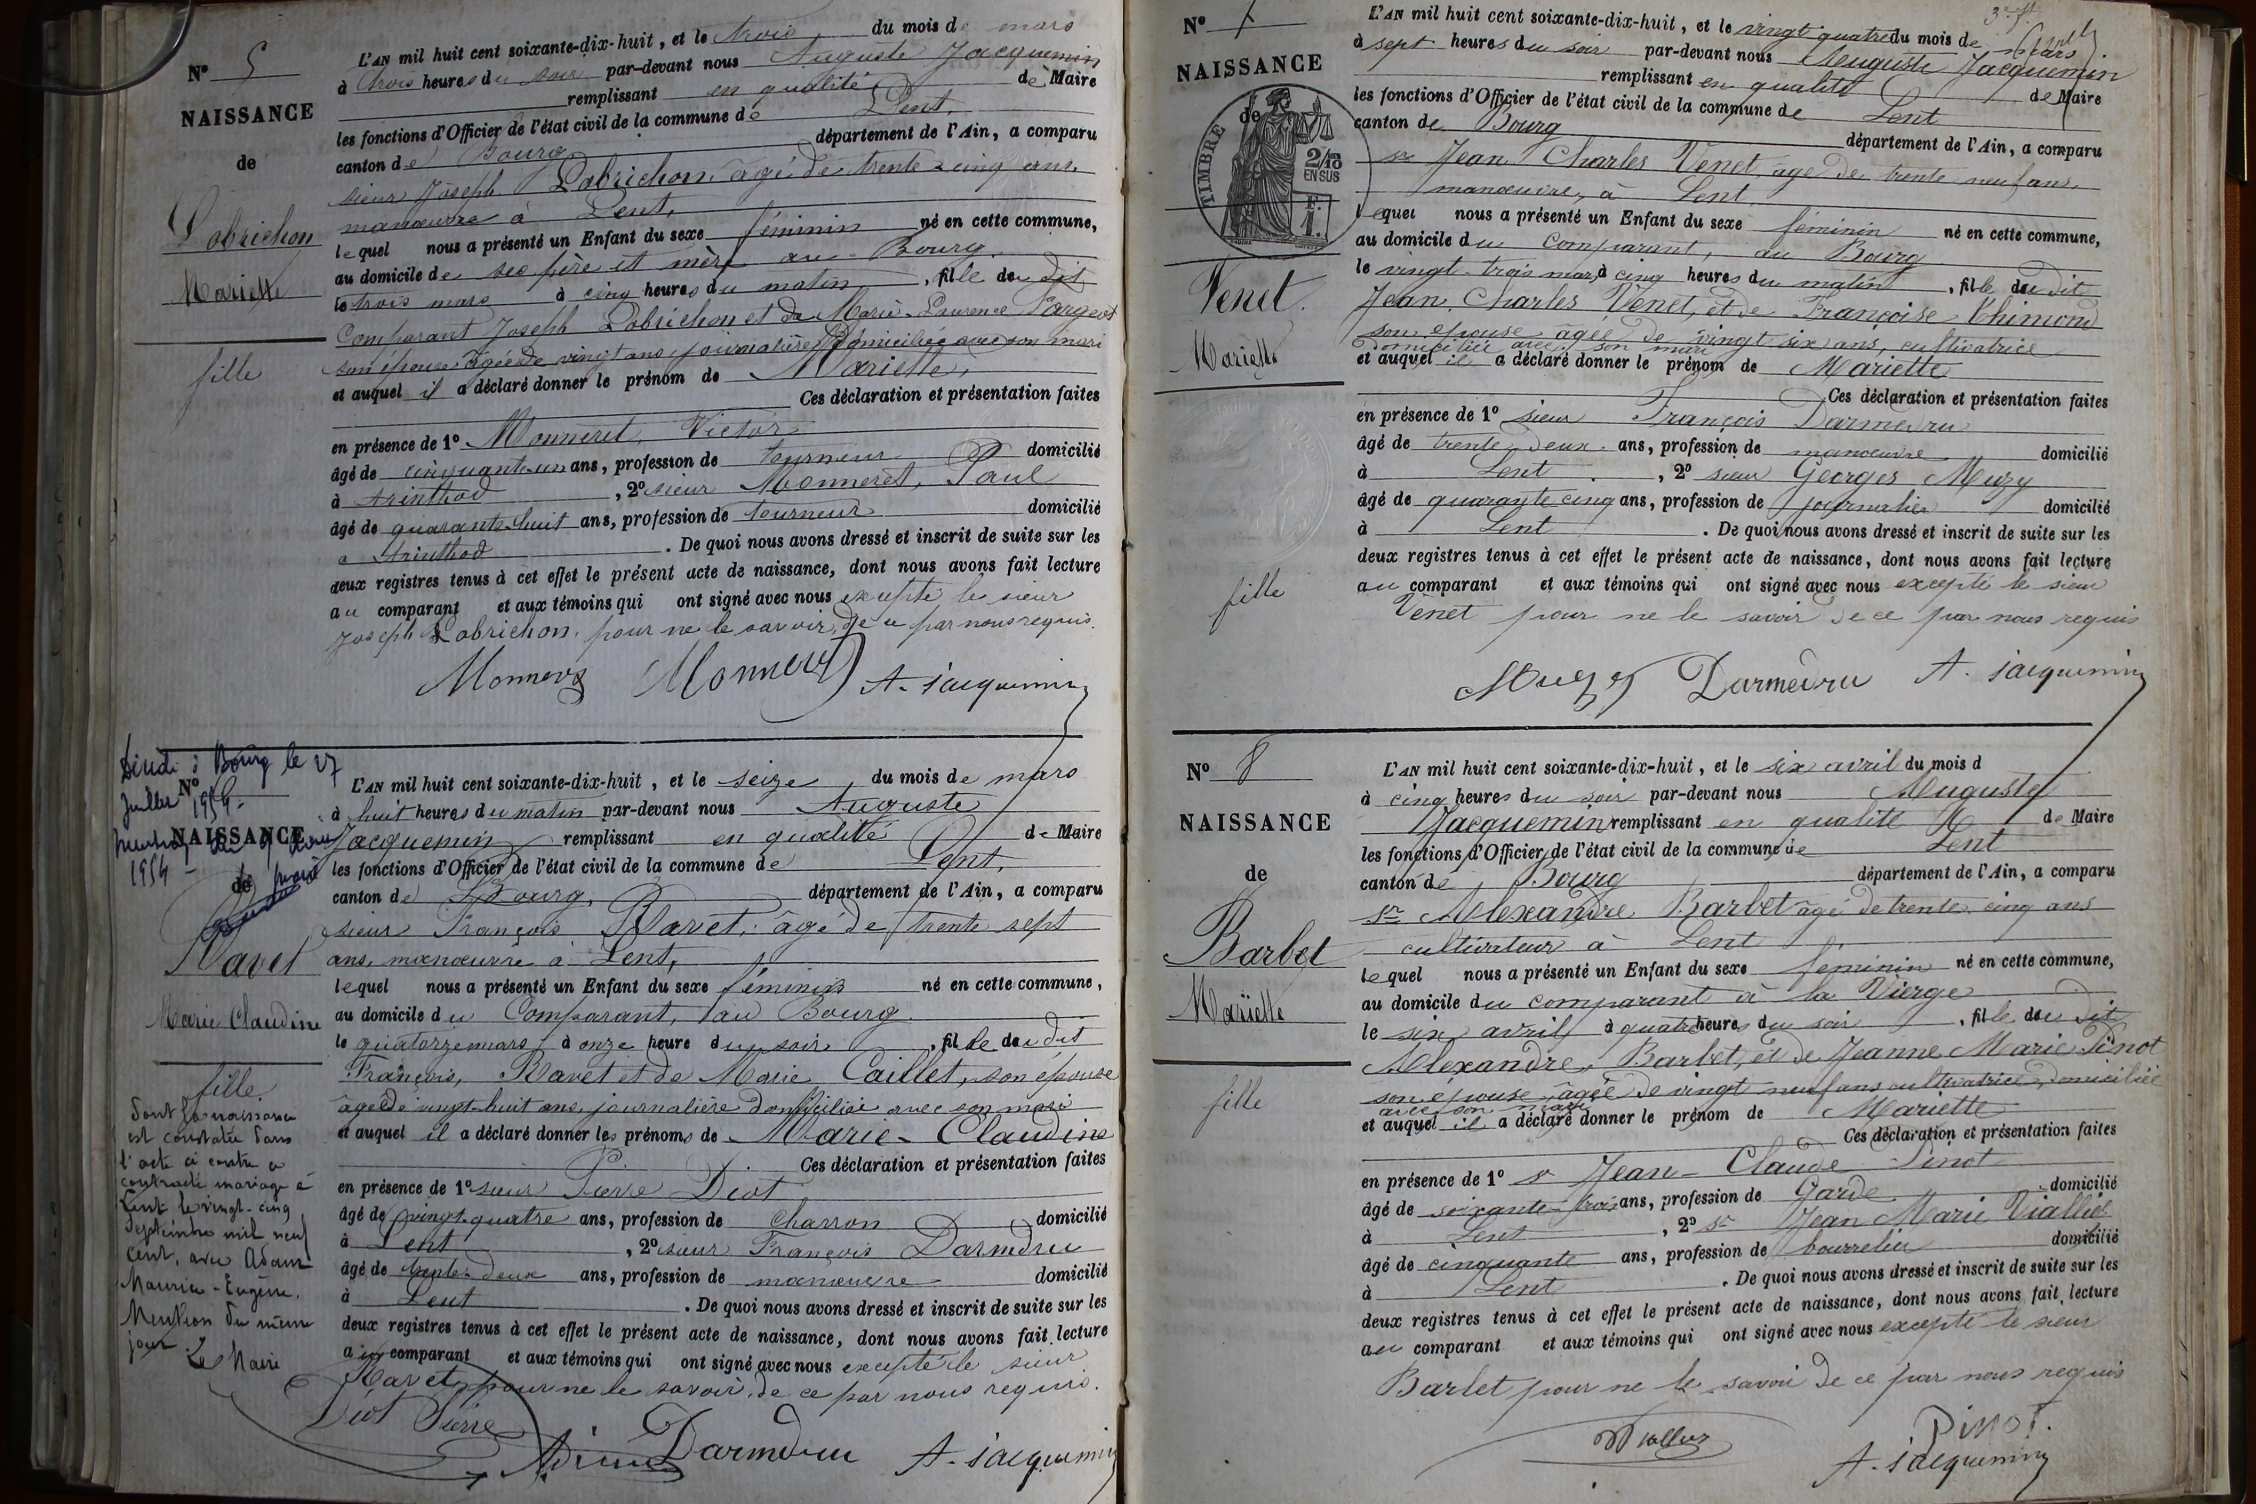 N° 5
NAISSANCE
de
Labrichon
Mariette
fille
L'AN mil huit cent soixante-dix-huit, et le trois du mois de mars
à trois heures du soir par-devant nous Auguste Jacquemin
remplissant en qualité de Maire
les fonctions d'Officier de l'état civil de la commune de Lent,
canton de Bourg département de l'Ain, a comparu
sieur Joseph Labrichon âgé de trente-cinq ans,
manœuvre à Lent,
lequel nous a présenté un Enfant du sexe féminin né en cette commune,
au domicile de ses père et mère au Bourg
le trois mars à cinq heures du matin, fille du dit
Comparant Joseph Labrichon et de Marie-Laurence
son épouse âgée de vingt ans, journalière domiciliée avec son mari
et auquel il a déclaré donner le prénom de Mariette,
Ces déclaration et présentation faites
en présence de 1° Monneret, Victor
âgé de cinquante-un ans, profession de tourneur domicilié
à Arinthod, 2° sieur Monneret, Paul
âgé de quarante-huit ans, profession de tourneur domicilié
à Arinthod. De quoi nous avons dressé et inscrit de suite sur les
deux registres tenus à cet effet le présent acte de naissance, dont nous avons fait lecture
au comparant et aux témoins qui ont signé avec nous excepté le sieur
Joseph Labrichon, pour ne le savoir, de ce par nous requis.
Monneret Monneret A. Jacquemin
Décédée à Bourg le 27
Juillet 1954.
N°
NAISSANCE
1954
de
Ravet
Marie Claudine
fille
dont la naissance
est constatée dans
l'acte ci contre a
contracté mariage à
Lent le vingt-cinq
Septembre mil neuf
cent, avec Adam
Maurice-Eugène.
Mention du même
jour.
Le Maire
L'AN mil huit cent soixante-dix-huit, et le seize du mois de mars
à huit heures du matin par-devant nous Auguste
Jacquemin remplissant en qualité de Maire
les fonctions d'Officier de l'état civil de la commune de Lent,
canton de Bourg, département de l'Ain, a comparu
sieur François Ravet, âgé de trente sept
ans, manœuvre à Lent,
lequel nous a présenté un Enfant du sexe féminin né en cette commune,
au domicile du Comparant, au Bourg
le quatorze mars, à onze heure du soir, fille du dit
François, Ravet et de Marie Caillet, son épouse
âgée de vingt-huit ans, journalière domiciliée avec son mari
et auquel il a déclaré donner les prénoms de Marie-Claudine
Ces déclaration et présentation faites
en présence de 1° sieur Pierre Diot
âgé de vingt-quatre ans, profession de charron domicilié
à Lent, 2° sieur François Darmedru
âgé de trente-deux ans, profession de manœuvre domicilié
à Lent. De quoi nous avons dressé et inscrit de suite sur les
deux registres tenus à cet effet le présent acte de naissance, dont nous avons fait lecture
au comparant et aux témoins qui ont signé avec nous excepté le sieur
Ravet, pour ne le savoir, de ce par nous requis.
Diot Pierre
Darmedru A. Jacquemin
N° 7
NAISSANCE
de
TIMBRE
2/10
EN SUS
Venet.
Mariette
fille
L'AN mil huit cent soixante-dix-huit, et le vingt quatre du mois de Mars
à sept heures du soir par-devant nous Auguste Jacquemin
remplissant en qualité de Maire
les fonctions d'Officier de l'état civil de la commune de Lent
canton de Bourg département de l'Ain, a comparu
sr Jean Charles Venet, âgé de trente neuf ans,
manœuvre, à Lent
lequel nous a présenté un Enfant du sexe féminin né en cette commune,
au domicile du comparant, au Bourg
le vingt-trois mars, à cinq heures du matin, fille du dit
Jean Charles Venet, et de Françoise Chimond
son épouse âgée de vingt six ans, cultivatrice
domiciliée avec son mari
et auquel il a déclaré donner le prénom de Mariette
Ces déclaration et présentation faites
en présence de 1° sieur François Darmedru
âgé de trente deux ans, profession de manœuvre domicilié
à Lent, 2° sieur Georges Muzy
âgé de quarante cinq ans, profession de journalier domicilié
à Lent. De quoi nous avons dressé et inscrit de suite sur les
deux registres tenus à cet effet le présent acte de naissance, dont nous avons fait lecture
au comparant et aux témoins qui ont signé avec nous excepté le sieur
Venet pour ne le savoir de ce par nous requis
Muzy Darmedru A. Jacquemin
N° 8
NAISSANCE
de
Barbet
Mariette
fille
L'AN mil huit cent soixante-dix-huit, et le six avril du mois d
à cinq heures du soir par-devant nous Auguste
Jacquemin remplissant en qualité de Maire
les fonctions d'Officier de l'état civil de la commune de Lent
canton de Bourg département de l'Ain, a comparu
sr Alexandre Barbet âgé de trente cinq ans
cultivateur à Lent
lequel nous a présenté un Enfant du sexe féminin né en cette commune,
au domicile du comparant à la Vierge
le six avril à quatre heures du soir, fille du dit
Alexandre, Barbet, et de Jeanne Marie Pinot
son épouse, âgée de vingt neuf ans cultivatrice, domiciliée
avec son mari
et auquel il a déclaré donner le prénom de Mariette
Ces déclaration et présentation faites
en présence de 1° sr Jean-Claude Pinot
âgé de soixante-trois ans, profession de Garde domicilié
à Lent, 2° sr Jean Marie Viallier
âgé de cinquante ans, profession de bourrelier domicilié
à Lent. De quoi nous avons dressé et inscrit de suite sur les
deux registres tenus à cet effet le présent acte de naissance, dont nous avons fait lecture
au comparant et aux témoins qui ont signé avec nous excepté le sieur
Barbet pour ne le savoir de ce par nous requis
Viallier Pinot.
A. Jacquemin